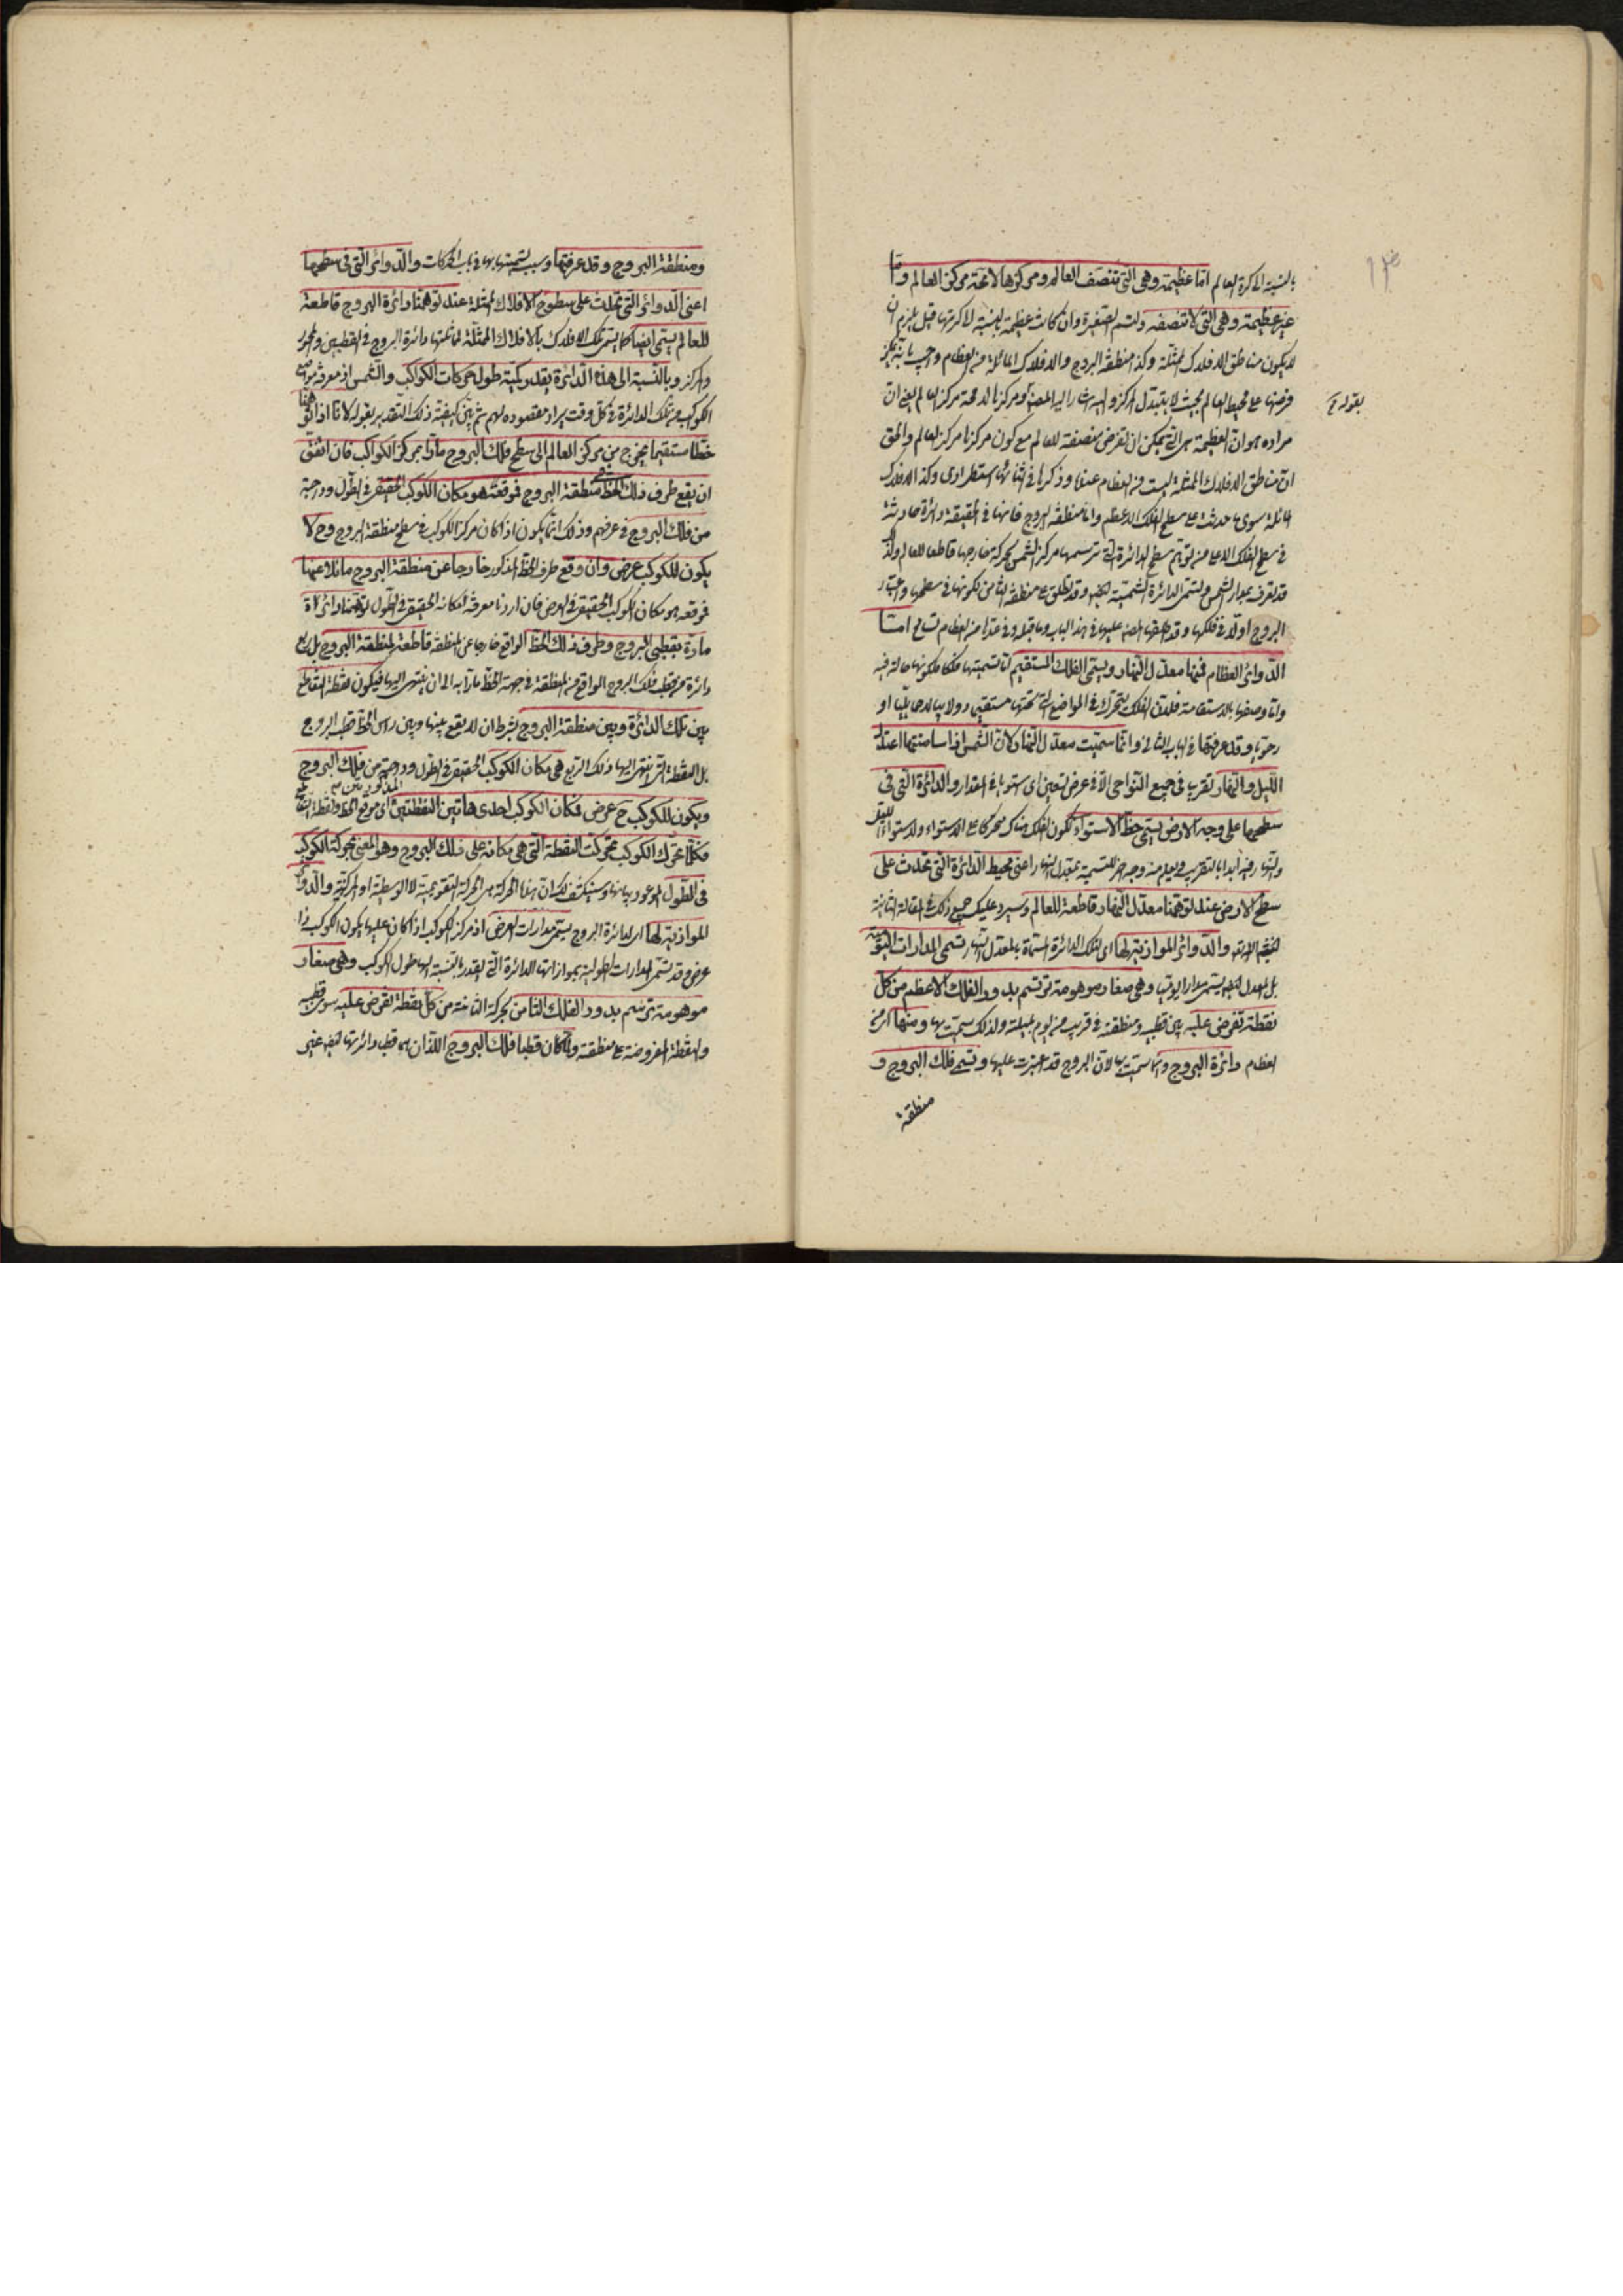 بالنسبة الى كرة العالم اما عظيمة وهى التى تنصف العالم ومركزها لا محالة مركز العالم واما
غير عظيمة وهى التى لا تنصفه وتسمى الصغيرة وان كانت عظيمة بالنسبة الى كرتها قيل يلزم ان
لا يكون مناطق الافلاك الممثلة وكذا منطقة البروج والافلاك المائلة من العظام واجيب بانه يمكن
فرضها على محيط العالم بحيث لا يتبدل المركز واليه اشار المصنف ومركزها لا محالة مركز العالم يعنى ان
بقوله
مراده هو ان العظيمة هى التى يمكن ان تفرض منصفة للعالم مع كون مركزها مركز العالم والحق
ان مناطق الافلاك الممثلة ليست من العظام عندنا وذكرها فى اثنائها استطرادى وكذا الافلاك
المائلة سوى ما حدثت على سطح الفلك الاعظم واما منطقة البروج فانها فى الحقيقة دائرة حادثة
فى سطح الفلك الاعلى من توهم سطح الدائرة التى ترسمها مركز الشمس بحركة خارجها قاطعا للعالم ولذا
قد تعرف بمدار الشمس وتسمى الدائرة الشمسية ايضا وقد تطلق على منطقة الثامن لكونها فى سطحها واعتبار
البروج اولا فى فلكها وقد اطلقها المصنف عليها فى هذا الباب وما قبله وفى عدها من العظام تسامح اما
الدوائر العظام فمنها معدل النهار ويسمى الفلك المستقيم اما تسميتها فلكا فلكونها حالة فيه
واما وصفها بالاستقامة فلان الفلك يتحرك فى المواضع التى تحتها مستقيما دولابيا لا حمايليا او
رحويا وقد عرفتها فى الباب الثانى وانما سميت معدل النهار لان الشمس اذا سامتتها اعتدل
الليل والنهار تقريبا فى جميع النواحى الا فى عرض تسعين اى استويا فى المقدار والدائرة التى فى
سطحها على وجه الارض يسمى خط الاستواء لكون الفلك هناك متحركا على الاستواء ولاستواء الليل
والنهار فيه ابدا بالتقريب ويعلم منه وجه اخر للتسمية بمعدل النهار اعنى محيط الدائرة التى تحدث على
سطح الارض عند توهمنا معدل النهار قاطعة للعالم وسيرد عليك جميع ذلك فى المقالة الثانية
والدوائر الموازية لها اى لتلك الدائرة المسماة بالمعدل النهار تسمى المدارات اليومية
بل المعدل ايضا يسمى مدارا يوميا وهى صغار موهومة ترتسم بدور الفلك الاعظم من كل
نقطة تفرض عليه بين قطبيه ومنطقته فى قريب من يوم بليلته ولذلك سميت بها ومنها اى من
العظام دائرة البروج وانما سميت بها لان البروج قد اعتبرت عليها وتسمى فلك البروج و
منطقة
ومنطقة البروج وقد عرفتها وسبب تسميتها بها فى باب الحركات والدوائر التى فى سطحها
اعنى الدوائر التى تحدث على سطوح الافلاك الممثلة عند توهمنا دائرة البروج قاطعة
للعالم يسمى ايضا كما يسمى تلك الافلاك بالافلاك الممثلة لمماثلتها دائرة البروج فى القطبين والمحور
والمركز وبالنسبة الى هذه الدائرة يقدر كمية طول حركات الكواكب والشمس اذ معرفة مواضع
الكواكب من تلك الدائرة فى كل وقت يراد مقصوده لهم ثم بين كيفية ذلك التقدير بقوله لانا اذا توهمنا
خطا مستقيما يخرج من مركز العالم الى سطح فلك البروج مارا بمركز الكواكب فان اتفق
ان يقع طرف ذلك الخط فى منطقة البروج فموقعه هو مكان الكوكب الحقيقى فى الطول ودرجته
من فلك البروج فى عرفهم وذلك انما يكون اذا كان مركز الكوكب فى سطح منطقة البروج وح لا
يكون للكوكب عرض وان وقع طرف الخط المذكور خارجا عن منطقة البروج مائلا عنها
فموقعه هو مكان الكوكب الحقيقى فى العرض فان اردنا معرفة مكانه الحقيقى فى الطول توهمنا دائرة
مارة بقطبى البروج وطرف ذلك الخط الواقع خارجا عن المنطقة قاطعة لمنطقة البروج بل ربع
دائرة من قطب فلك البروج الواقع من المنطقة فى جهة الخط مارا به الى ان ينتهى اليها فيكون نقطة التقاطع
بين تلك الدائرة وبين منطقة البروج بشرط ان لا يقع بينها وبين راس الخط قطب البروج
بل النقطة التى ينتهى اليها ذلك الربع هى مكان الكوكب الحقيقى فى الطول ودرجته من فلك البروج
ويكون للكوكب ح عرض فمكان الكوكب احدى هاتين النقطتين المذكورتين اى موقع الخط ونقطة التقاطع
فكلما تحرك الكوكب تحركت النقطة التى هى مكانه على فلك البروج وهو المعنى بحركة الكوكب
فى الطول الموعود بيانها وسينكشف لك ان هذه الحركة هى الحركة التقويمية لا الوسطية او المركزية والدوائر
الموازية لها اى لدائرة البروج يسمى مدارات العرض اذ مركز الكوكب اذا كان عليها يكون الكوكب ذا
عرض وقد تسمى المدارات الطولية بموازاتها الدائرة التى يقدر بالنسبة اليها طول الكوكب وهى صغار
موهومة ترتسم بدور الفلك الثامن بحركته الثامنة من كل نقطة تفرض عليه سوى قطبيه
والنقطة المفروضة على منطقته ولما كان قطبا فلك البروج اللذان هما قطبا دائرتها ايضا غير